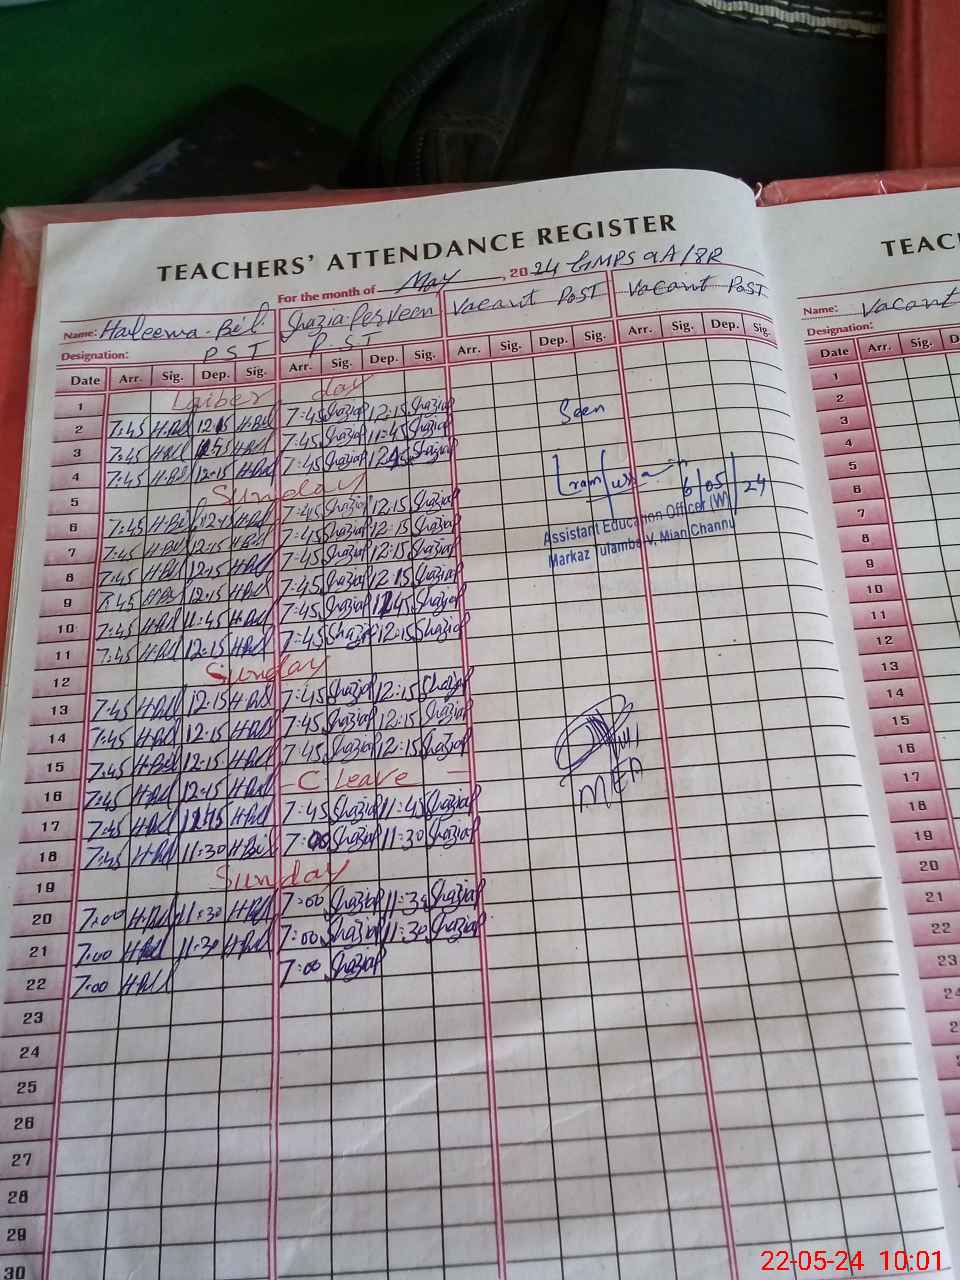 TEACHERS' ATTENDANCE REGISTER
For the month of May, 2024 GMPS 9A/8R
Name: Haleema-Bēl. Shazia Perveen Vacant Post Vacant Post
Designation: PST PST
Date Arr. Sig. Dep. Sig. Arr. Sig. Dep. Sig. Arr. Sig. Dep. Sig. Arr. Sig. Dep. Sig.
1 Laiber day
2 7:45 H.Bēl 12:15 H.Bēl 7:45 Shaziap 12:15 Shaziap
3 7:45 H.Bēl H.Bēl 7:45 Shaziap 11:45 Shaziap
4 7:45 H.Bēl 12:15 H.Bēl 7:45 Shaziap Shaziap
5 Sunday
6 7:45 H.Bēl 12:15 H.Bēl 7:45 Shaziap 12:15 Shaziap
7 7:45 H.Bēl 12:15 H.Bēl 7:45 Shaziap 12:15 Shaziap
8 7:45 H.Bēl 12:15 H.Bēl 7:45 Shaziap 12:15 Shaziap
9 7:45 H.Bēl 12:15 H.Bēl 7:45 Shaziap 12:15 Shaziap
10 7:45 H.Bēl 11:45 H.Bēl 7:45 Shaziap Shaziap
11 7:45 H.Bēl 12:15 H.Bēl 7:45 Shaziap 12:15 Shaziap
12 Sunday
13 7:45 H.Bēl 12:15 H.Bēl 7:45 Shaziap 12:15 Shaziap
14 7:45 H.Bēl 12:15 H.Bēl 7:45 Shaziap 12:15 Shaziap
15 7:45 H.Bēl 12:15 H.Bēl 7:45 Shaziap 12:15 Shaziap
16 7:45 H.Bēl 12:15 H.Bēl - C Leave -
17 7:45 H.Bēl H.Bēl 7:45 Shaziap 11:45 Shaziap
18 7:45 H.Bēl 11:30 H.Bēl 7:00 Shaziap 11:30 Shaziap
19 Sunday
20 7:00 H.Bēl 11:30 H.Bēl 7:00 Shaziap 11:30 Shaziap
21 7:00 H.Bēl 11:30 H.Bēl 7:00 Shaziap 11:30 Shaziap
22 7:00 H.Bēl 7:00 Shaziap
23
24
25
26
27
28
29
30
Seen
6/05/24
Assistant Education Officer (W)
Markaz Tulamba V, Mian Channu
MEA
TEAC
Name: Vacant
Designation:
Date Arr. Sig. D
1
2
3
4
5
6
7
8
9
10
11
12
13
14
15
16
17
18
19
20
21
22
23
22-05-24 10:01